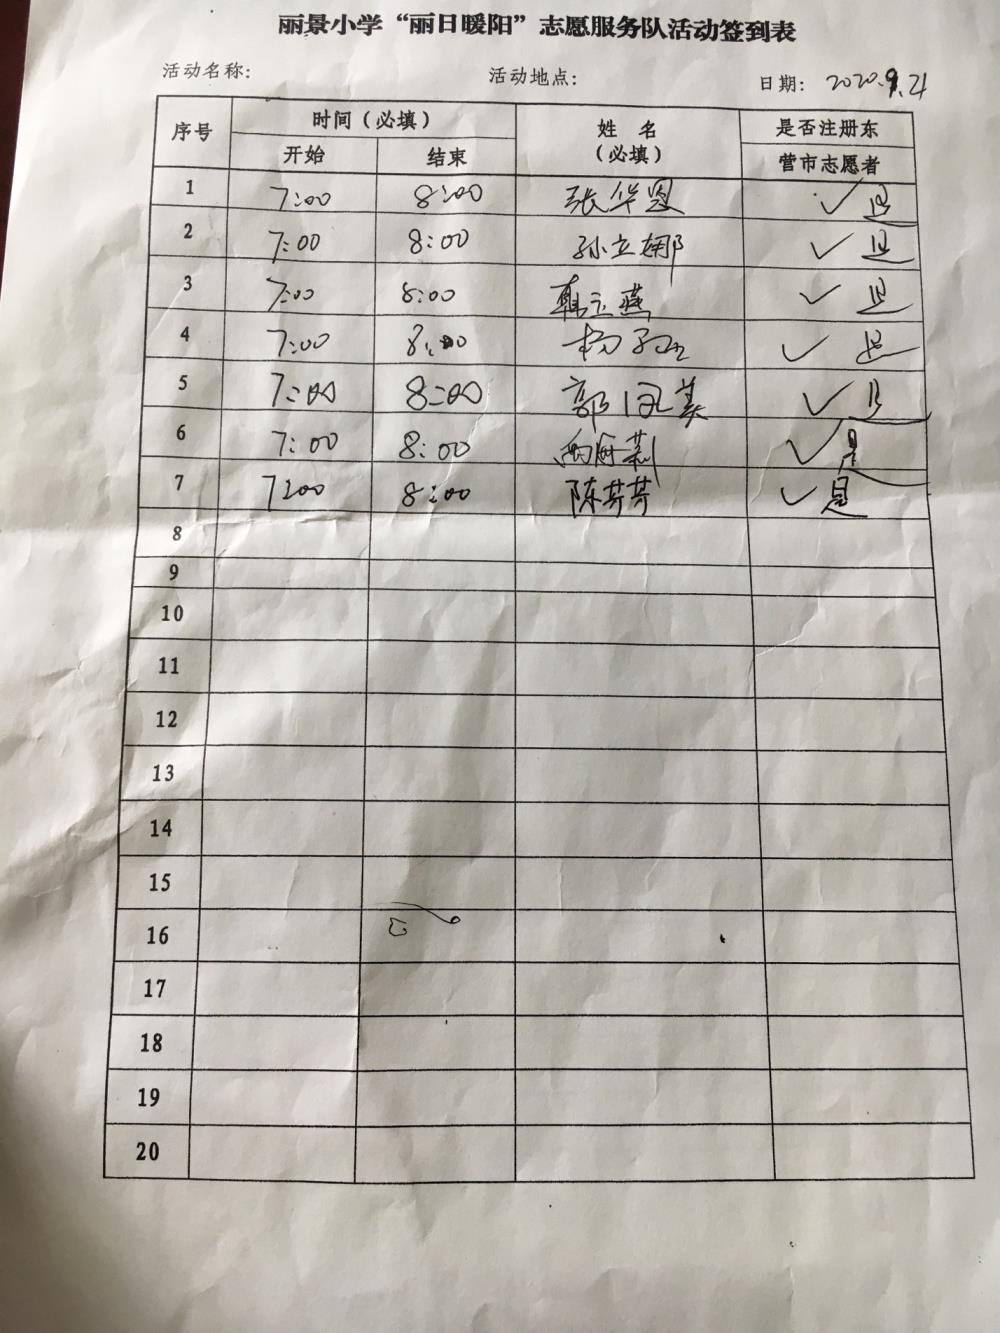 丽景小学“丽日暖阳”志愿服务队活动签到表
活动名称: 活动地点: 日期: 2020.9.21
序号 时间(必填) 姓名(必填) 是否注册东营市志愿者
开始 结束
1 7:00 8:00 张华恩 ✓ 是
2 7:00 8:00 孙立娜 ✓ 是
3 7:00 8:00 韩玉燕 ✓ 是
4 7:00 8:00 杨 ✓ 是
5 7:00 8:00 郭凤美 ✓ 是
6 7:00 8:00 ✓ 是
7 7:00 8:00 陈芹芹 ✓ 是
8
9
10
11
12
13
14
15
16
17
18
19
20